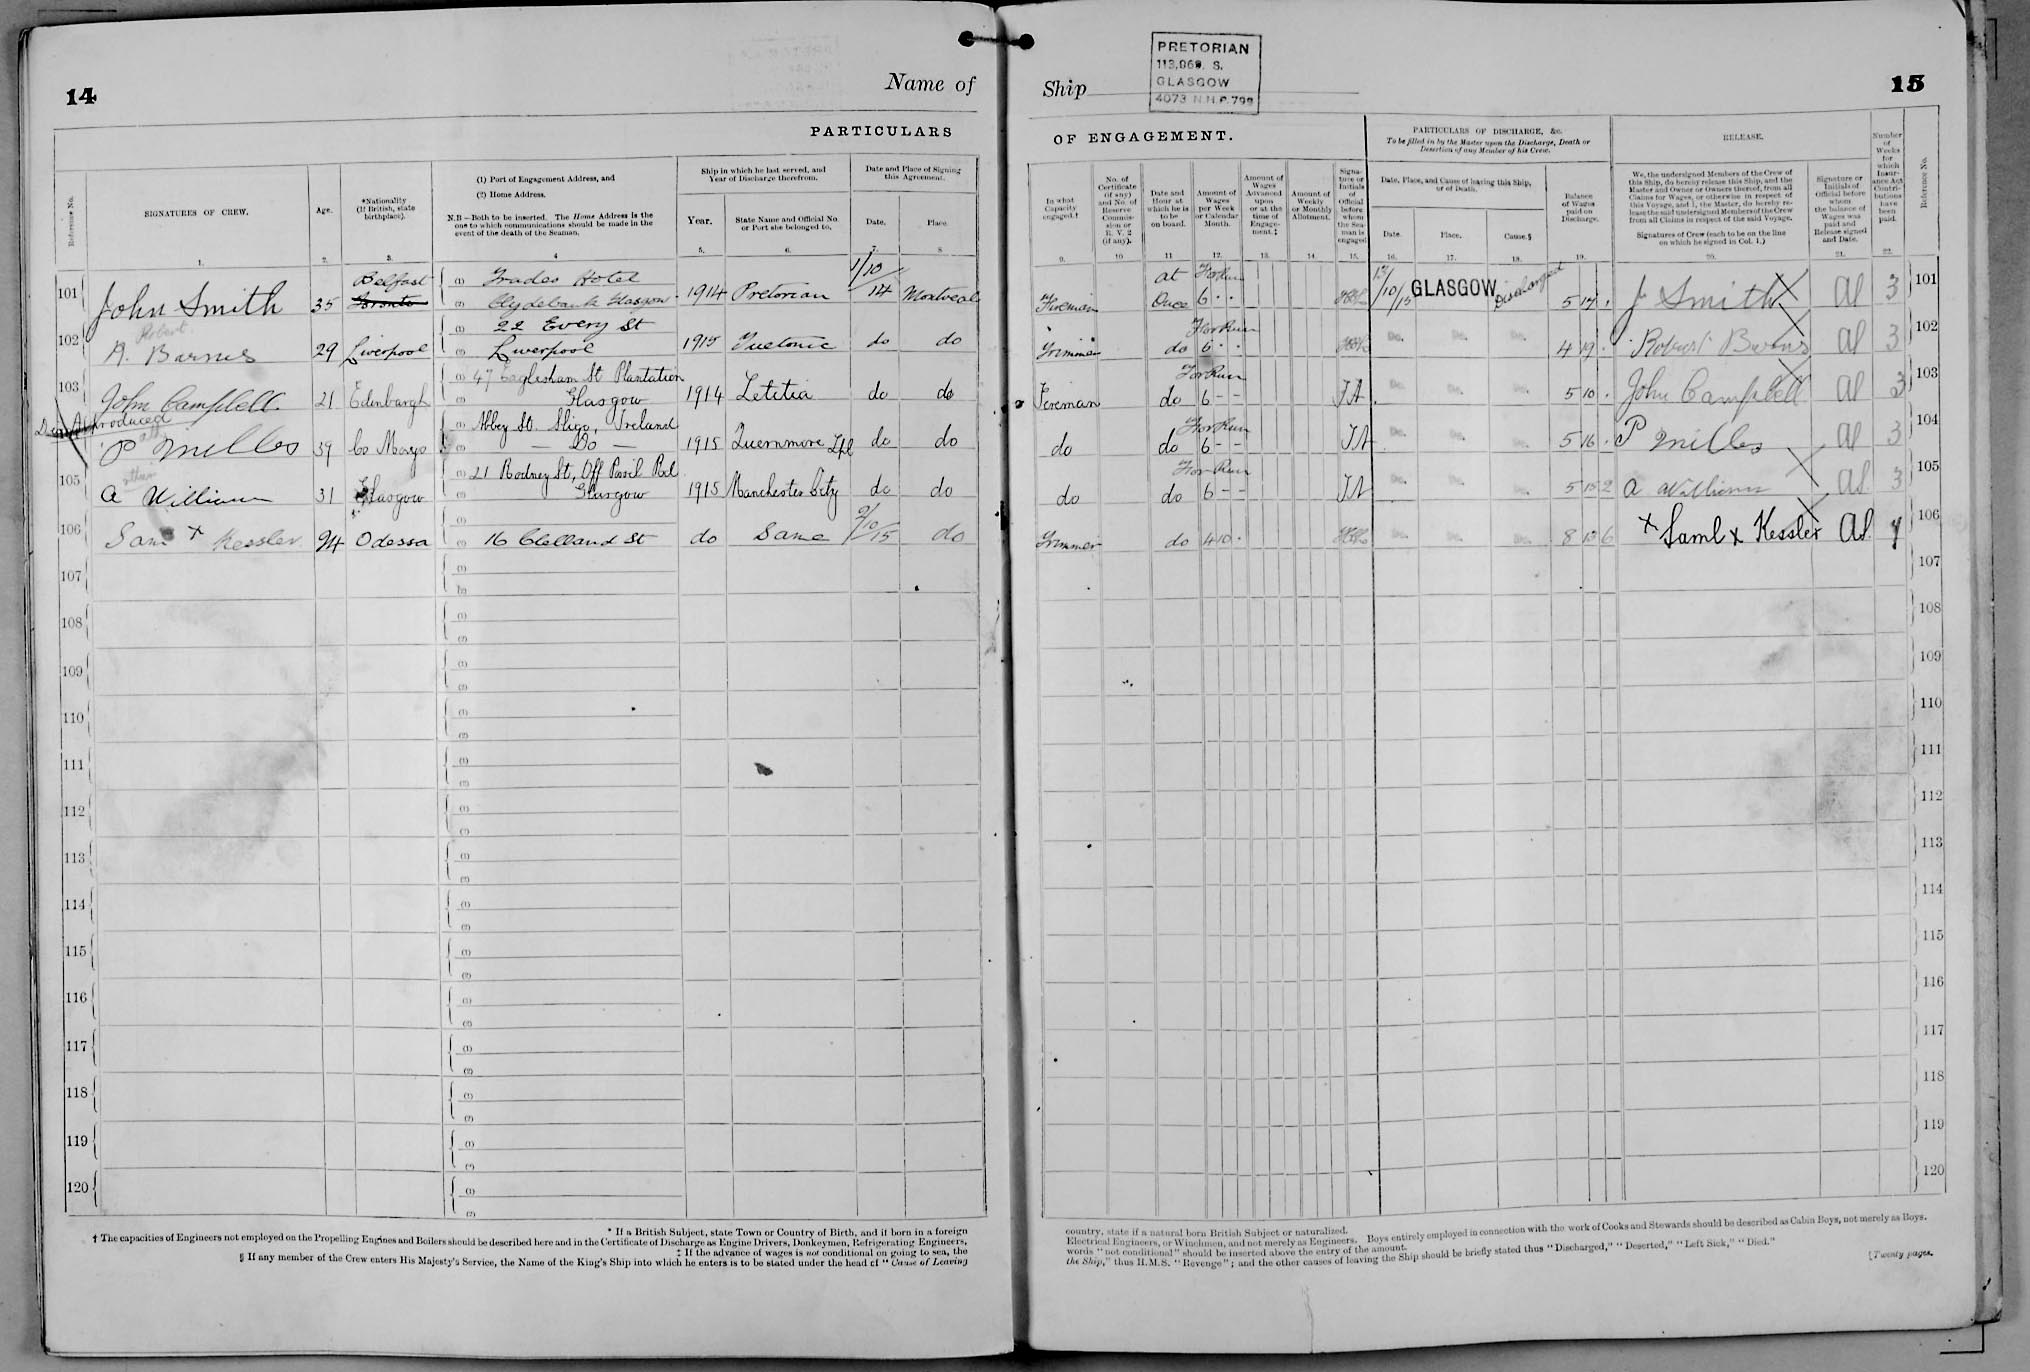 14
Name of
PARTICULARS
Reference No.
SIGNATURES OF CREW.
Age.
*Nationality
(If British, state
birthplace).
(1) Port of Engagement Address, and
(2) Home Address.
N.B—Both to be inserted. The Home Address is the
one to which communications should be made in the
event of the death of the Seaman.
Ship in which he last served, and
Year of Discharge therefrom.
Year.
State Name and Official No.
or Port she belonged to.
Date and Place of Signing
this Agreement.
Date.
Place.
1. 2. 3. 4 5. 6. 7. 8
101 John Smith 35 Belfast Toronto (1) Trades Hotel
(2) Clydebank Glasgow 1914 Pretorian 1/10/14 Montreal
102 Robert
R. Barnes 29 Liverpool (1) 22 Every St
(2) Liverpool 1915 Tuetonic do do
103 John Campbell 21 Edinburgh (1) 47 Eaglesham St Plantation
(2) Glasgow 1914 Letitia do do
produced
P Milles 39 Co Mayo (1) Abbey St. Sligo, Ireland
(2) — Do — 1915 Quernmore Lpl do do
105 A William 31 Glasgow (1) 21 Rodney St, Off Rd
(2) Glasgow 1915 Manchester City do do
106 Sam x Kessler 24 Odessa (1)
(2) 16 Clelland St do Same 2/10/15 do
107 (1)
(2)
108 (1)
(2)
109 (1)
(2)
110 (1)
(2)
111 (1)
(2)
112 (1)
(2)
113 (1)
(2)
114 (1)
(2)
115 (1)
(2)
116 (1)
(2)
117 (1)
(2)
118 (1)
(2)
119 (1)
(2)
120 (1)
(2)
* If a British Subject, state Town or Country of Birth, and if born in a foreign
† The capacities of Engineers not employed on the Propelling Engines and Boilers should be described here and in the Certificate of Discharge as Engine Drivers, Donkeymen, Refrigerating Engineers,
‡ If the advance of wages is not conditional on going to sea, the
§ If any member of the Crew enters His Majesty's Service, the Name of the King's Ship into which he enters is to be stated under the head of "Cause of Leaving
Ship
PRETORIAN
S.
GLASGOW
4073 N.H.P. 799
15
OF ENGAGEMENT.
PARTICULARS OF DISCHARGE, &c.
To be filled in by the Master upon the Discharge, Death or
Desertion of any Member of his Crew.
RELEASE.
In what
Capacity
engaged.†
No. of
Certificate
(if any)
and No. of
Reserve
Commis-
sion or
R. V. 2
(if any).
Date and
Hour at
which he is
to be
on board.
Amount of
Wages
per Week
or Calendar
Month.
Amount of
Wages
Advanced
upon
or at the
time of
Engage-
ment.‡
Amount of
Weekly
or Monthly
Allotment.
Signa-
ture or
Initials
of
Official
before
whom
the Sea-
man is
engaged
Date, Place, and Cause of leaving this Ship,
or of Death.
Date.
Place.
Cause.§
Balance
of Wages
paid on
Discharge.
We, the undersigned Members of the Crew of
this Ship, do hereby release this Ship, and the
Master and Owner or Owners thereof, from all
Claims for Wages, or otherwise in respect of
this Voyage, and I, the Master, do hereby re-
lease the said undersigned Members of the Crew
from all Claims in respect of the said Voyage.
Signatures of Crew (each to be on the line
on which he signed in Col. 1.)
Signature or
Initials of
Official before
whom
the balance of
Wages was
paid and
Release signed
and Date.
Number
of
Weeks
for
which
Insur-
ance Act
Contri-
butions
have
been
paid.
Reference No.
9. 10 11 12. 13. 14. 15. 16. 17. 18. 19. 20. 21. 22.
Fireman at Once For Run 6 · · /10/15 GLASGOW Discharged 5 17 . J Smith Al 3 101
Trimmer do For Run 6 · · Do. Do. Do. 4 19 . Al 3 102
Fireman do For Run 6 – – JA Do. Do. Do. 5 10 . John Campbell Al 3 103
do do For Run 6 – – JA Do. Do. Do. 5 16 . P Milles Al 3 104
do do For Run 6 – – JA Do. Do. Do. 5 15 2 A William Al 3 105
Trimmer do 4 10 . Do. Do. Do. 8 6 x Saml x Kessler Al 106
107
108
109
110
111
112
113
114
115
116
117
118
119
120
country, state if a natural born British Subject or naturalized.
Electrical Engineers, or Winchmen, and not merely as Engineers. Boys entirely employed in connection with the work of Cooks and Stewards should be described as Cabin Boys, not merely as Boys.
words "not conditional" should be inserted above the entry of the amount.
the Ship," thus H.M.S. "Revenge"; and the other causes of leaving the Ship should be briefly stated thus "Discharged," "Deserted," "Left Sick," "Died."
[Twenty pages.